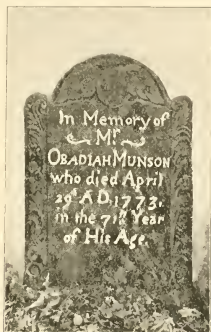 In Memory of
Mr
OBADIAH MUNSON
who died April
29th A.D. 1773,
in the 71st Year
of His Age.